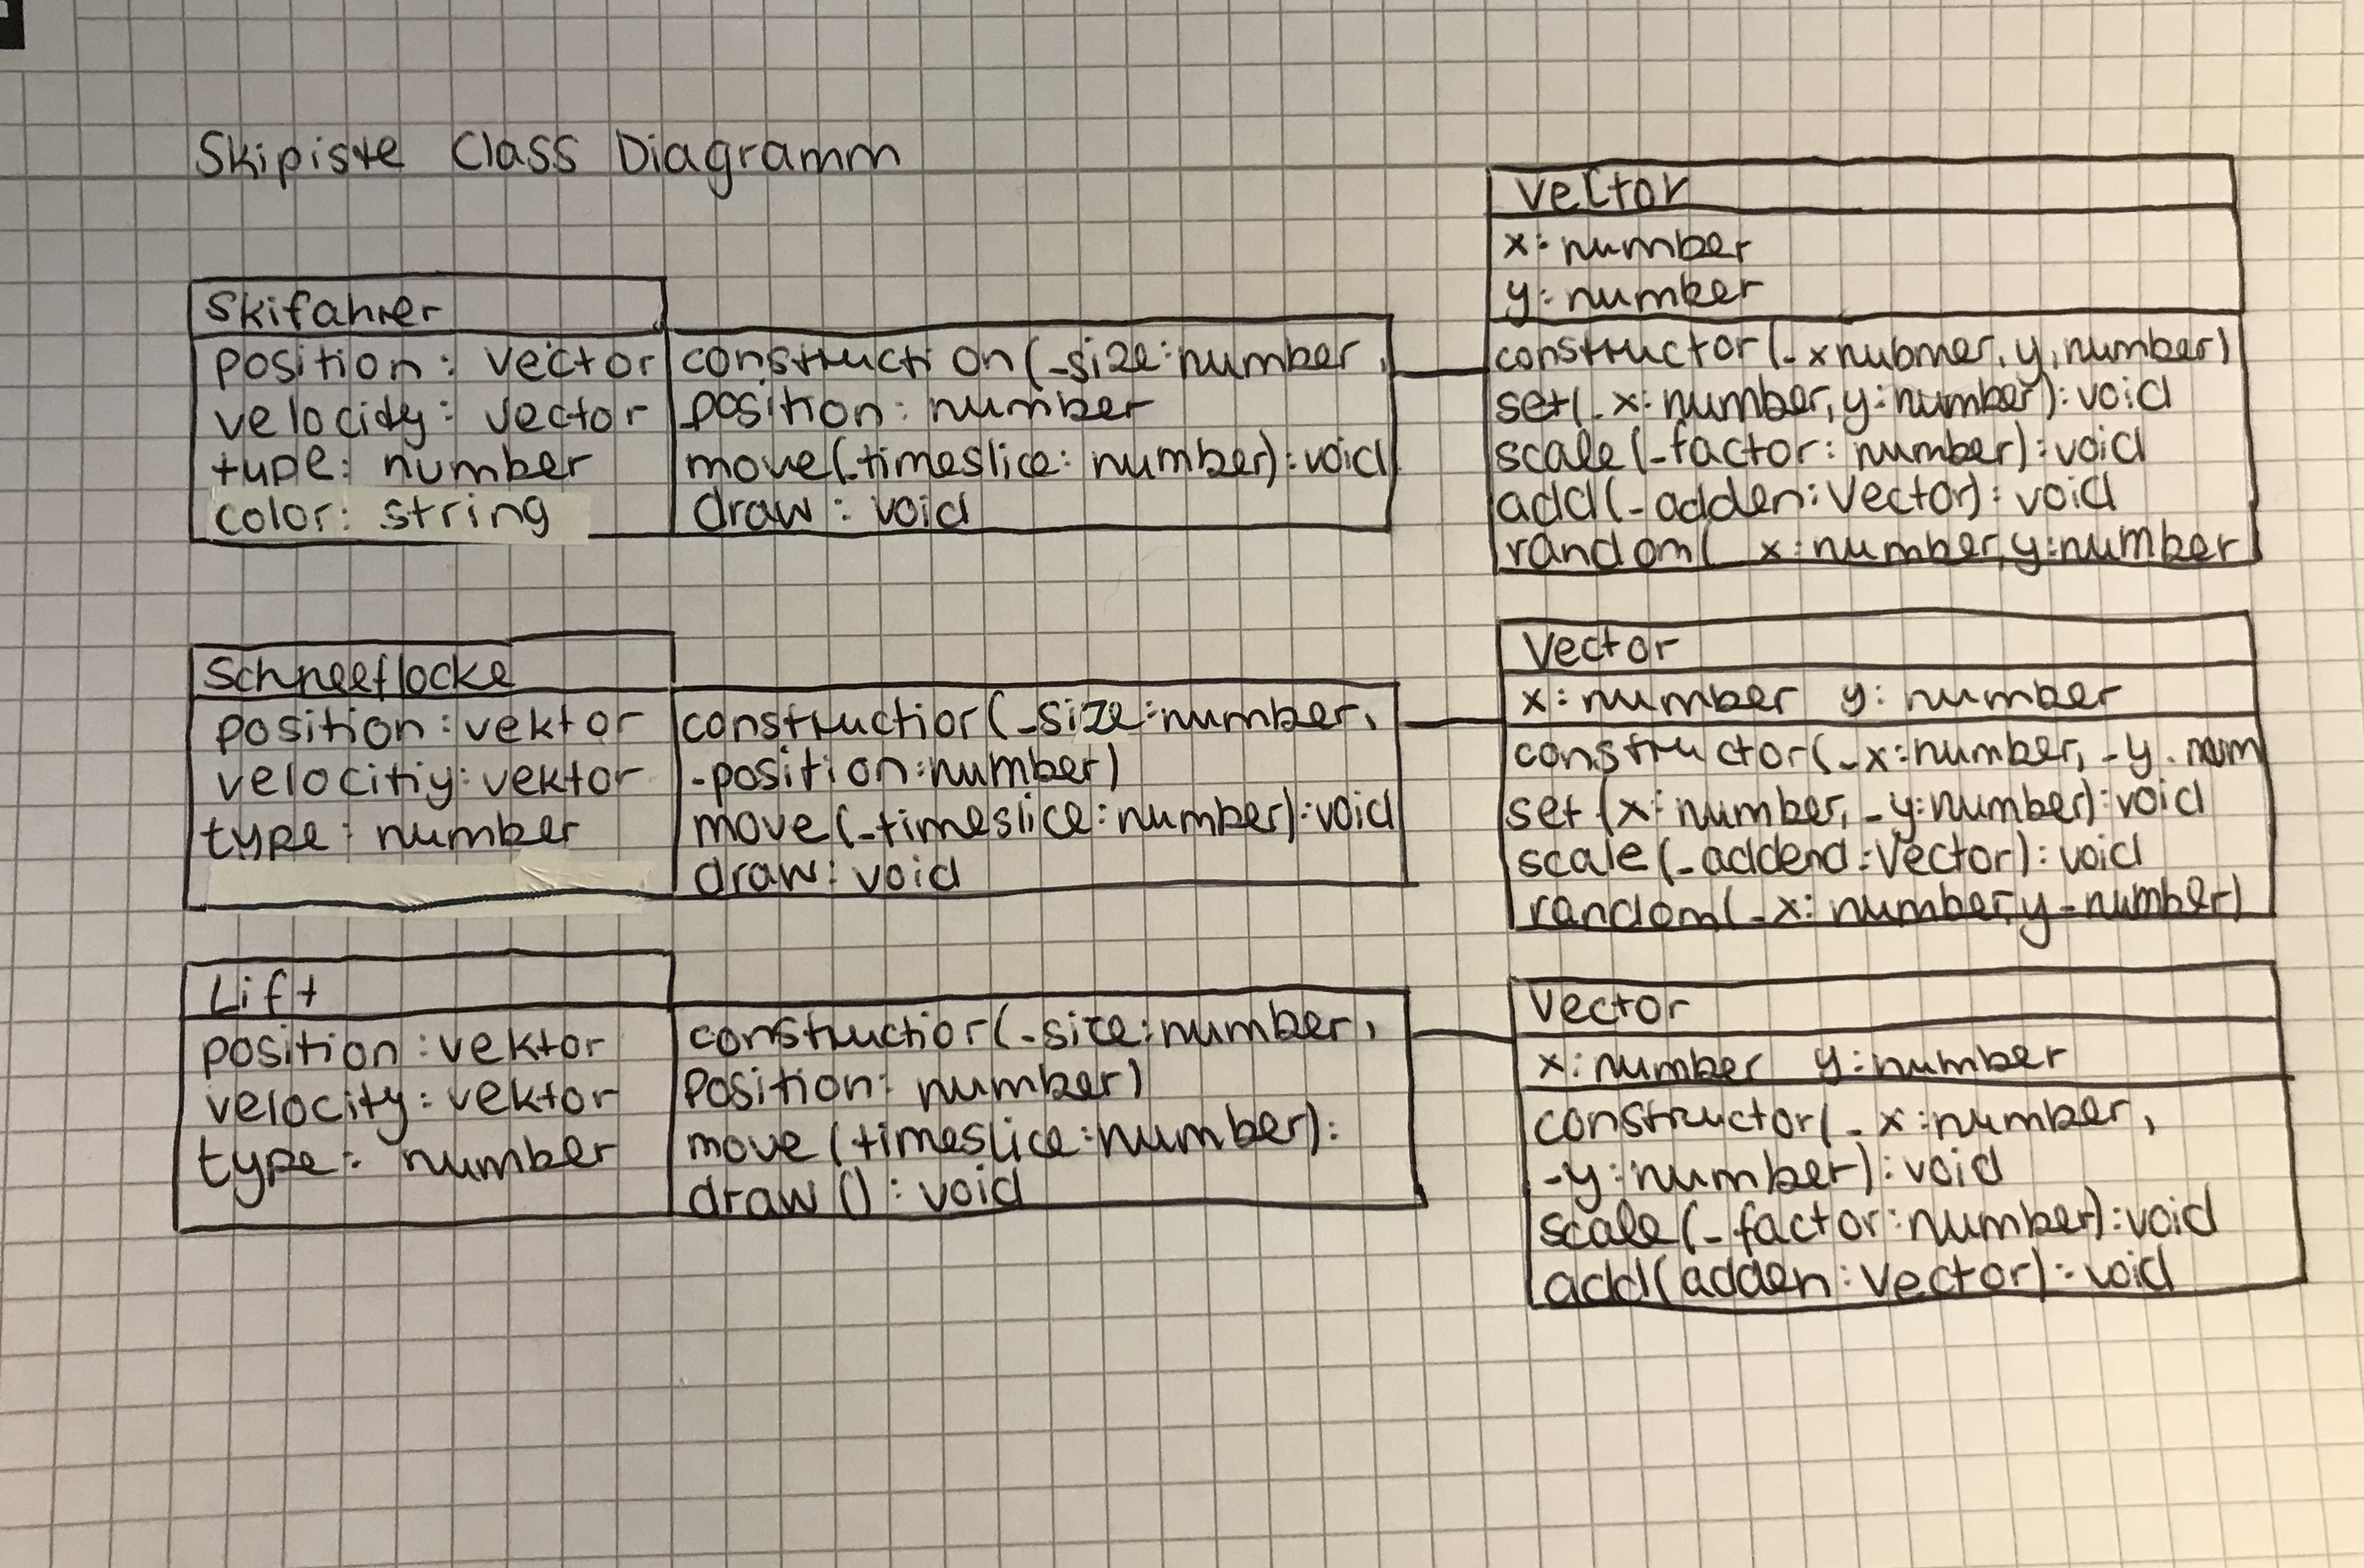 Skipiste Class Diagramm
Skifahrer
position: vector
velocidy: vector
type: number
color: string
construction(_size:number,
position: number
move(_timeslice: number): void
draw: void
Vector
x: number
y: number
constructor(_xnubmer, y, number)
set(_x: number, y: number): void
scale(_factor: number): void
add(_adden: Vector): void
random(_x: number, y: number
Schneeflocke
position: vektor
velocitiy: vektor
type: number
constructior(_size: number,
-position: number)
move(_timeslice: number): void
draw: void
Vector
x: number y: number
constructor(_x: number, _y. num
set (x: number, _y: number): void
scale(_addend: Vector): void
random(_x: number, y - number)
Lift
position: vektor
velocity: vektor
type: number
constructior(_size: number,
Position: number)
move (timeslice: number):
draw (): void
Vector
x: number y: number
constructor(_x: number,
-y: number): void
scale(_factor: number): void
add(adden: Vector): void